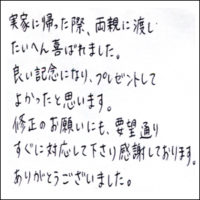 実家に帰った際、両親に渡し
たいへん喜ばれました。
良い記念になり、プレゼントして
よかったと思います。
修正のお願いにも、要望通り
すぐに対応して下さり感謝しております。
ありがとうございました。